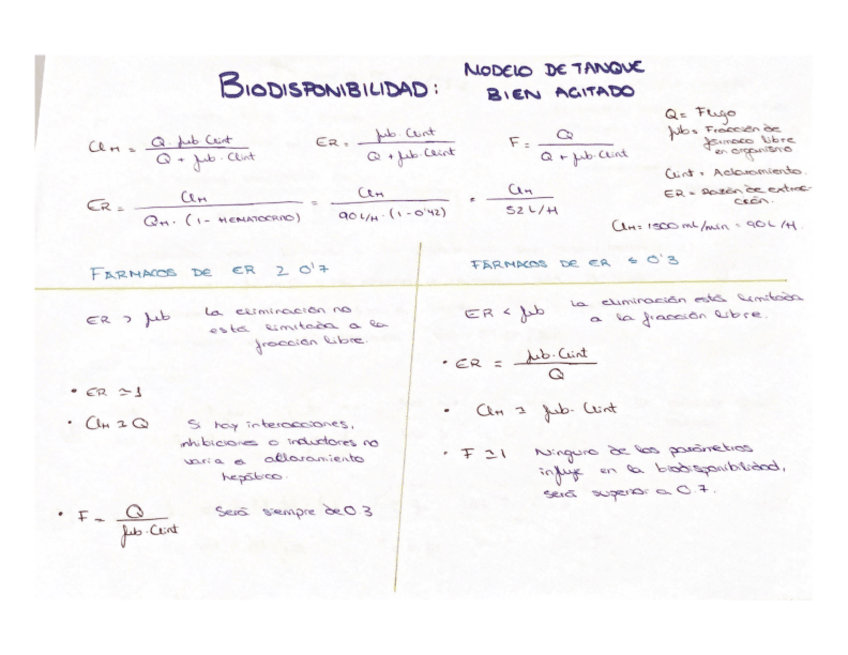 BIODISPONIBILIDAD: MODELO DE TANQUE
BIEN AGITADO
Q = Flujo
fub = Fracción de
fármaco libre
en organismo
Clint = Aclaramiento.
ER = Razón de extrac-
ción.
ClH = Q · fub Clint / Q + fub · Clint
ER = fub · Clint / Q + fub · Clint
F = Q / Q + fub · Clint
ER = ClH / QH · (1 - HEMATOCRITO) = ClH / 90 L/H · (1 - 0'42) = ClH / 52 L/H
ClH = 1500 mL/min = 90 L/H.
FÁRMACOS DE ER ≥ 0'7
ER > fub La eliminación no
está limitada a la
fracción libre.
• ER ≃ 1
• ClH ≃ Q Si hay interacciones,
inhibiciones o inductores no
varía el aclaramiento
hepático.
• F = Q / fub · Clint Será siempre de 0 3
FÁRMACOS DE ER ≤ 0'3
ER < fub La eliminación está limitada
a la fracción libre.
• ER = fub · Clint / Q
• ClH ≃ fub · Clint
• F ≃ 1 Ninguno de los parámetros
influye en la biodisponibilidad,
será superior a 0.7.